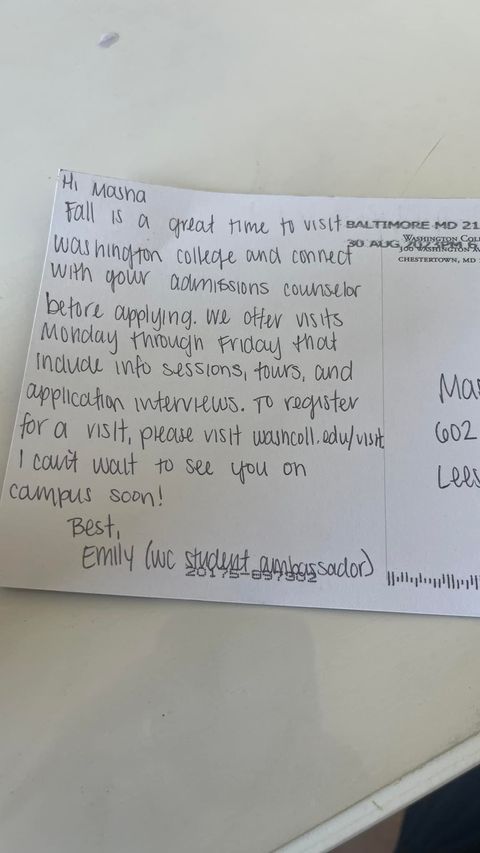 Hi Masha
Fall is a great time to visit
washington college and connect
with your admissions counselor
before applying. We offer visits
Monday through Friday that
include info sessions, tours, and
application interviews. To register
for a visit, please visit washcoll.edu/visit
I can't wait to see you on
campus soon!
Best,
Emily (WC student ambassador)
BALTIMORE MD 21
30 AUG
WASHINGTON
CHESTERTOWN, MD
602